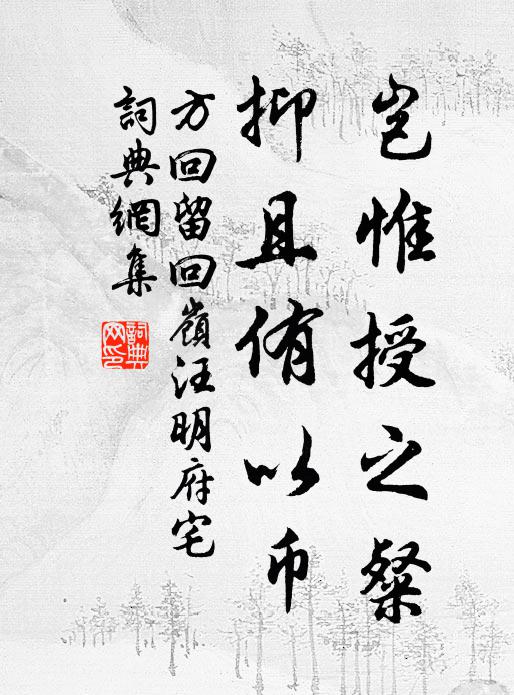 豈惟授之粲
抑且侑以币
方回留回嶺汪明府宅
詞典網集
詞典網印